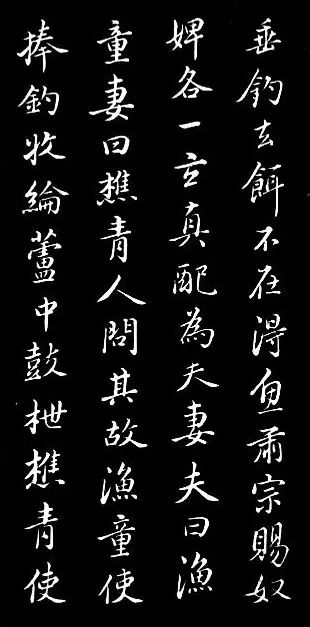 垂釣去餌不在得魚肅宗賜奴
婢各一玄真配為夫妻夫曰漁
童妻曰樵青人問其故漁童使
捧釣收綸蘆中鼓枻樵青使